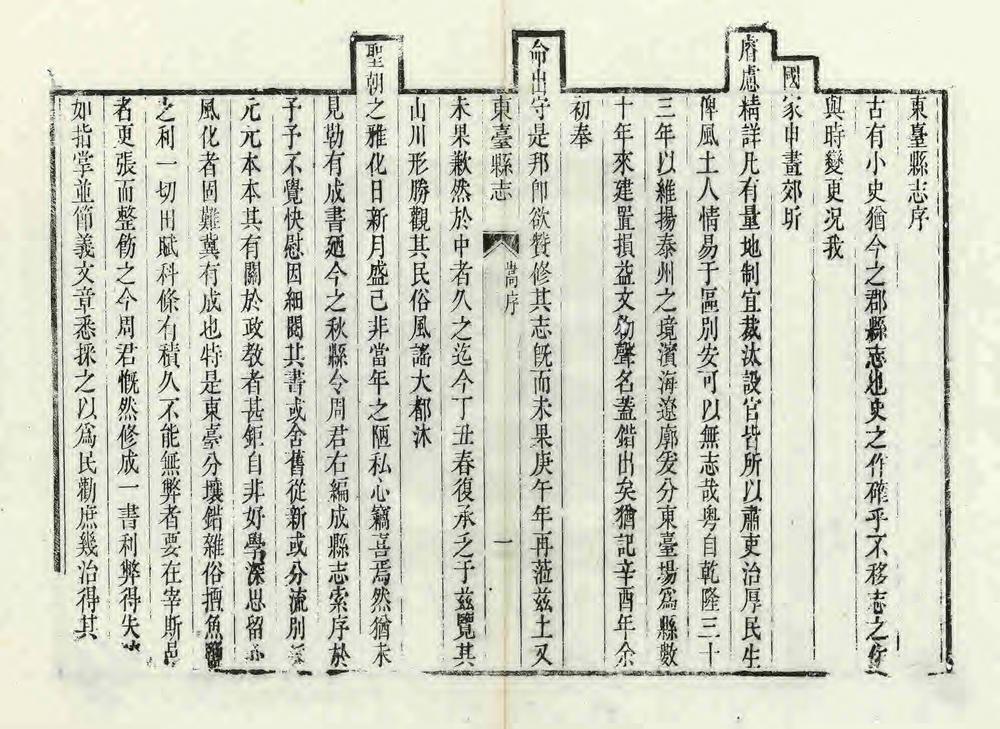 東臺縣志序
古有小史猶今之郡縣志也史之作確乎不移志之作
與時變更况我
國家申畫郊圻
睿慮精詳凡有量地制宜裁汰設官皆所以肅吏治厚民生
俾風土人情易于區別安可以無志哉粤自乾隆三十
三年以維揚泰州之境濱海遼廓爰分東臺場爲縣數
十年來建置損益文物聲名蓋錯出矣猶記辛酉年余
初奉
命出守是邦卽欲贊修其志旣而未果庚午年再蒞兹土又
東臺縣志
嵩序
一
未果歉然於中者久之迄今丁丑春復承乏于兹覽其
山川形勝觀其民俗風謠大都沐
聖朝之雅化日新月盛己非當年之陋私心竊喜焉然猶未
見勒有成書廼今之秋縣令周君右編成縣志索序於
予予不覺快慰因細閱其書或舍舊從新或分流別
元元本本其有關於政教者甚鉅自非好學深思留
風化者固難冀有成也特是東臺分壤錯雜俗擅魚鹽
之利一切田賦科條有積久不能無弊者要在宰斯邑
者更張而整飭之今周君慨然修成一書利弊得失
如指掌並節義文章悉採之以爲民勸庶幾治得其